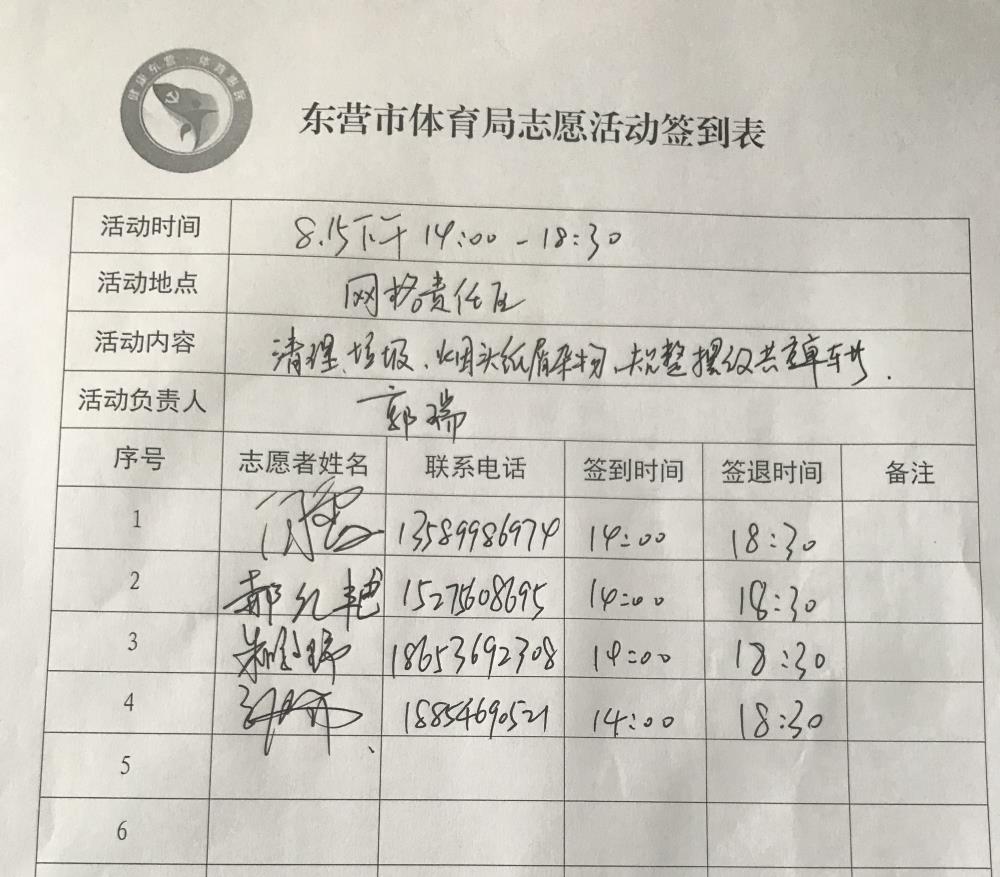 健康东营·体育惠民
东营市体育局志愿活动签到表
活动时间 8.15下午 14:00-18:30
活动地点 网格责任区
活动内容 清理垃圾、烟头纸屑杂物、规整摆放共享单车等.
活动负责人 郭瑞
序号 志愿者姓名 联系电话 签到时间 签退时间 备注
1 13589986974 14:00 18:30
2 15275608695 14:00 18:30
3 18653692308 14:00 18:30
4 18854690521 14:00 18:30
5
6